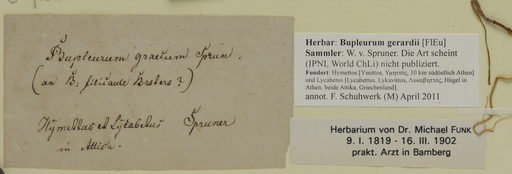 Bupleurum graecum Sprun.
(an B: filicaule Brotero?)
Hymettus et Lycabetus Spruner
in Attica.
Herbar: Bupleurum gerardii [FlEu]
Sammler: W. v. Spruner. Die Art scheint
(IPNI, World ChLi) nicht publiziert.
Fundort: Hymettos [Ymittos, Υμηττός, 10 km südöstlich Athen]
und Lycabetus [Lycabettus, Lykavittos, Λυκαβηττός, Hügel in
Athen, beide Attika, Griechenland].
annot. F. Schuhwerk (M) April 2011
Herbarium von Dr. Michael FUNK
9. I. 1819 - 16. III. 1902
prakt. Arzt in Bamberg